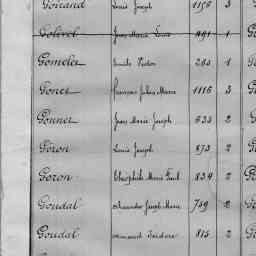 Goirand Louis Joseph 1196 3
Jean Marie Louis 1
Gomeler Emile Victor 1
Gones François Jules Marie 1116 3
Gonner Jean Marie Joseph 635 2
Goron Louis Joseph 873 2
Goron Théophile Marie Paul 834 2
Goudal Alexandre Joseph Marie 759 2
Goudal Isidore 815 2